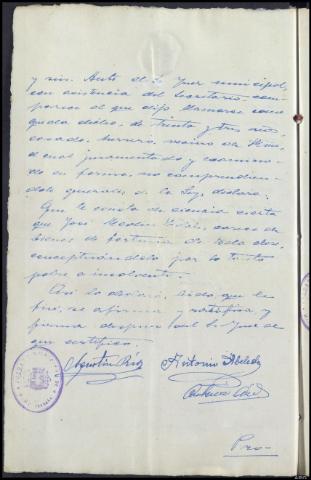 y sin. Ante el Sr. Juez municipal,
con asistencia del Secretario, com-
parece el que dijo llamarse como
queda dicho, de treinta y tres años,
casado, herrero, vecino de
el cual juramentado y examina-
do en forma, no comprendien-
dole generales de la Ley, declara:
Que le consta de ciencia cierta
que José carece de
bienes de fortuna de toda clase,
conceptuándole por lo tanto
pobre o insolvente.
Así lo declara, leído que le
fué, se afirma y ratifica y
firma despues del Sr. Juez de
que certifico.
Agustín Antonio Abeledo
Pro-